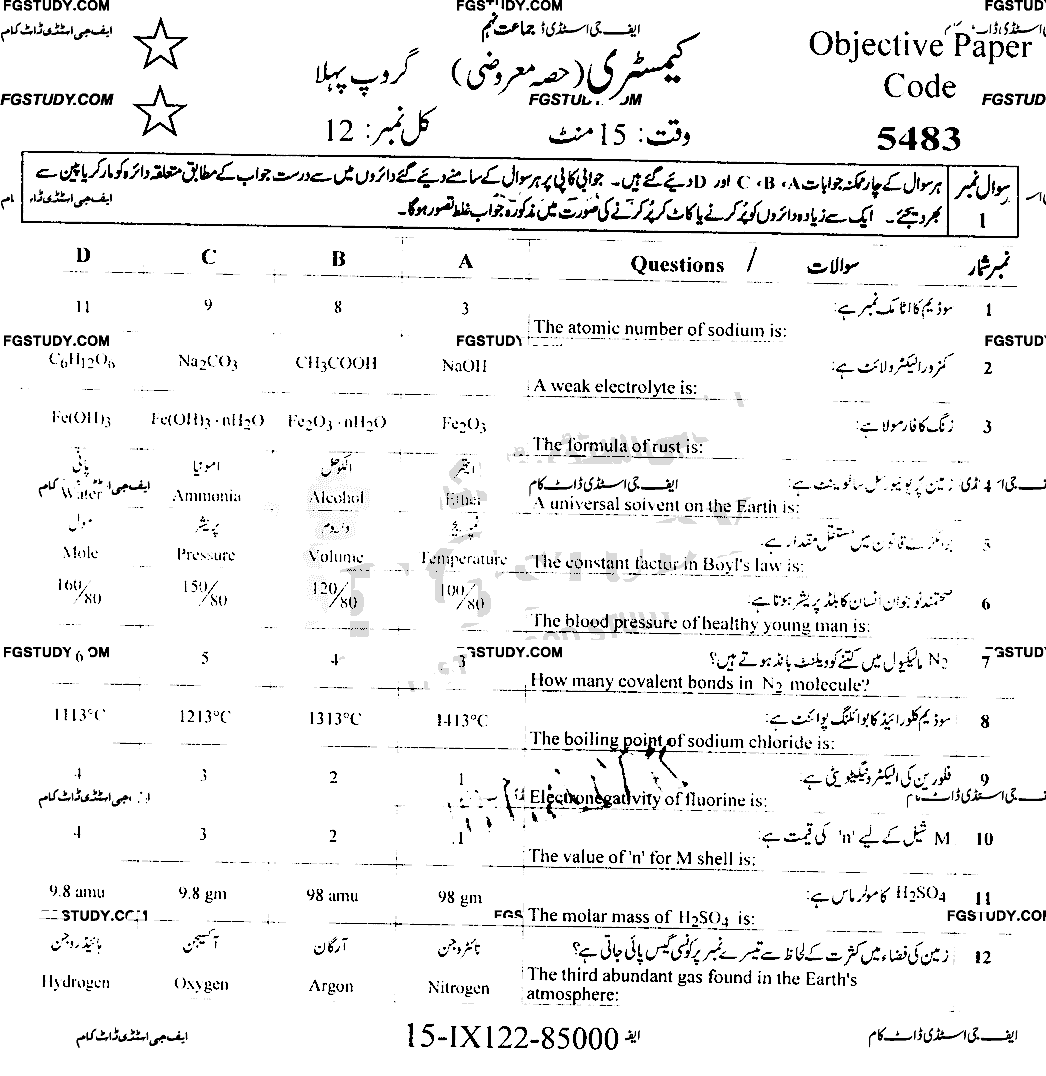 FGSTUDY.COM FGSTUDY.COM FGSTUD
ایف جی اسٹڈی ڈاٹ کام ایف جی اسٹڈی ڈ جماعت نہم
کیمسٹری (حصہ معروضی) گروپ پہلا
Objective Paper
Code
FGSTUDY.COM FGSTUD
وقت: 15 منٹ کل نمبر: 12
5483
سوال نمبر 1
ہر سوال کے چار ممکنہ جوابات A، B، C اور D دیے گئے ہیں۔ جوابی کاپی پر ہر سوال کے سامنے دیے گئے دائروں میں سے درست جواب کے مطابق متعلقہ دائرہ کو مارکر یا پین سے
بھر دیجئے۔ ایک سے زیادہ دائروں کو پُر کرنے یا کاٹ کر پُر کرنے کی صورت میں مذکورہ جواب غلط تصور ہوگا۔
D C B A Questions / سوالات نمبر شمار
11 9 8 3 سوڈیم کا اٹامک نمبر ہے: 1
The atomic number of sodium is:
FGSTUDY.COM FGSTUDY FGSTUD
C₆H₁₂O₆ Na₂CO₃ CH₃COOH NaOH کمزور الیکٹرولائٹ ہے: 2
A weak electrolyte is:
Fe(OH)₃ Fe(OH)₃·nH₂O Fe₂O₃·nH₂O Fe₂O₃ زنگ کا فارمولا ہے: 3
The formula of rust is:
پانی امونیا الکوحل ایتھر زمین پر یونیورسل سالوینٹ ہے: 4
Water Ammonia Alcohol Ether A universal solvent on the Earth is:
مول پریشر والیوم ٹمپریچر بوائلز کے قانون میں مستقل مقدار ہے: 5
Mole Pressure Volume Temperature The constant factor in Boyl's law is:
160/80 150/80 120/80 100/80 صحتمند نوجوان انسان کا بلڈ پریشر ہوتا ہے: 6
The blood pressure of healthy young man is:
6 5 4 3 N₂ مالیکیول میں کتنے کوویلنٹ بانڈ ہوتے ہیں؟ 7
How many covalent bonds in N₂ molecule?
1113°C 1213°C 1313°C 1413°C سوڈیم کلورائیڈ کا بوائلنگ پوائنٹ ہے: 8
The boiling point of sodium chloride is:
4 3 2 1 فلورین کی الیکٹرونیگیٹیویٹی ہے: 9
Electronegativity of fluorine is:
4 3 2 1 M شیل کے لیے 'n' کی قیمت ہے: 10
The value of 'n' for M shell is:
9.8 amu 9.8 gm 98 amu 98 gm H₂SO₄ کا مولر ماس ہے: 11
The molar mass of H₂SO₄ is:
FGSTUDY.COM
ہائیڈروجن آکسیجن آرگان نائٹروجن زمین کی فضاء میں کثرت کے لحاظ سے تیسرے نمبر پر کونسی گیس پائی جاتی ہے؟ 12
Hydrogen Oxygen Argon Nitrogen The third abundant gas found in the Earth's
atmosphere:
ایف جی اسٹڈی ڈاٹ کام 15-IX122-85000 ایف ایف جی اسٹڈی ڈاٹ کام